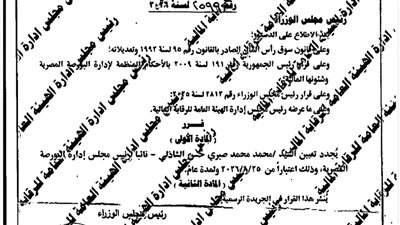 رقم ٢٥٩٩ لسنة ٢٠٢٦
رئيس مجلس الوزراء
بعد الاطلاع على الدستور؛
وعلى قانون سوق رأس المال الصادر بالقانون رقم ٩٥ لسنة ١٩٩٢ وتعديلاته؛
وعلى قرار رئيس الجمهورية رقم ١٩١ لسنة ٢٠٠٩ بالأحكام المنظمة لإدارة البورصة المصرية
وشئونها المالية؛
وعلى قرار رئيس مجلس الوزراء رقم ٢٨١٢ لسنة ٢٠٢٥؛
وعلى ما عرضه رئيس مجلس إدارة الهيئة العامة للرقابة المالية.
قــرر
(المادة الأولى)
يُجدد تعيين السيد/ محمد محمد صبري حسن الشاذلي - نائبا لرئيس مجلس إدارة البورصة
المصرية، وذلك اعتباراً من ٢٠٢٦/٨/٢٥ ولمدة عام.
(المادة الثانية)
يُنشر هذا القرار في الجريدة الرسمية
رئيس مجلس الوزراء
رئيس مجلس إدارة الهيئة العامة للرقابة المالية